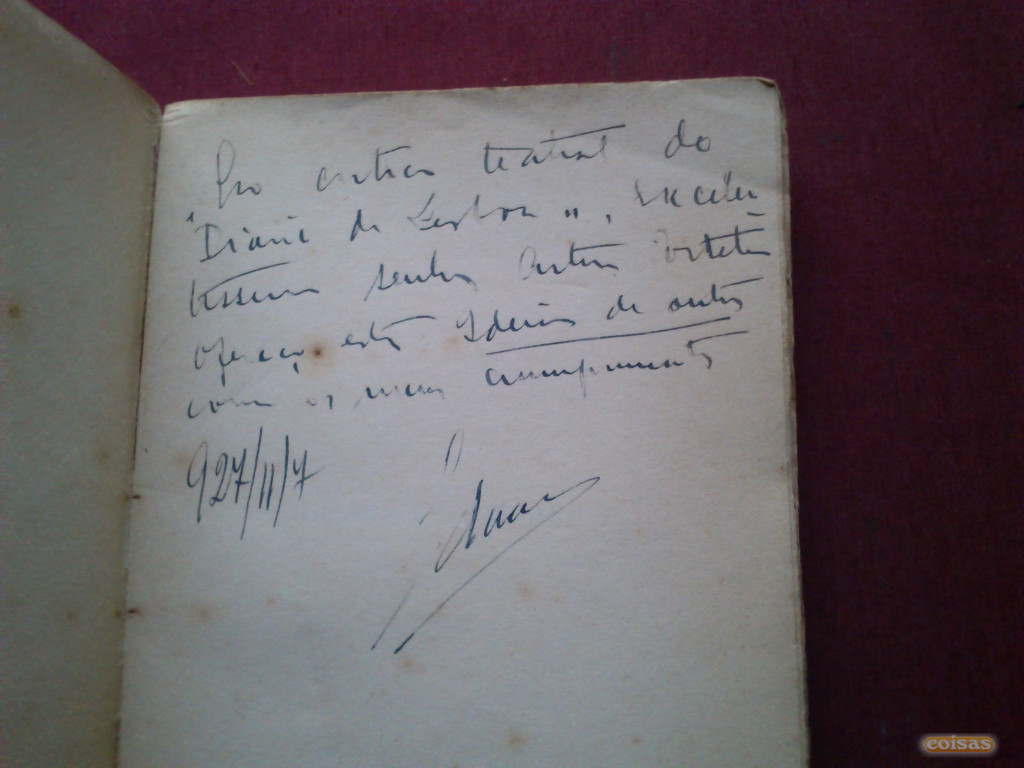 Ao critico teatral do
"Diario de Lisboa", Excelen
tissimo senhor Artur
ofereço estas Ideias de outros
com os meus cumprimentos
927/11/7
coisas